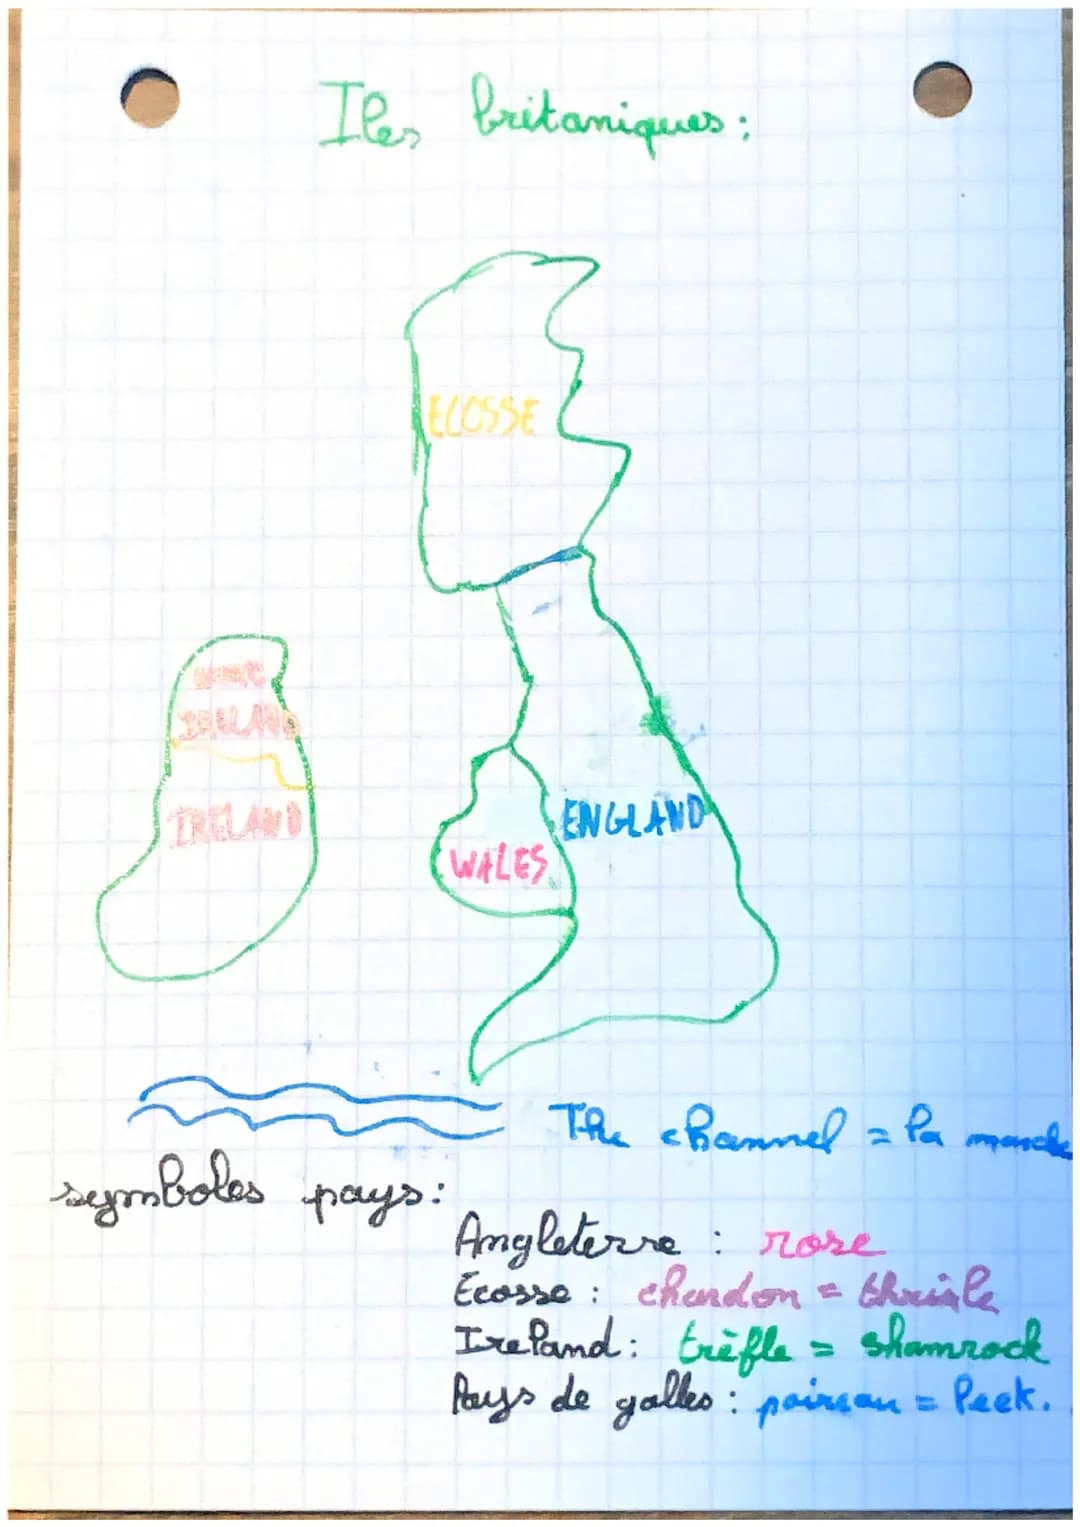 Iles britaniques:
ECOSSE
IRELAND
ENGLAND
WALES
The channel = la manche
symboles pays:
Angleterre : rose
Ecosse : chardon =
Ireland: trèfle = shamrock
Pays de galles : poireau = leek.